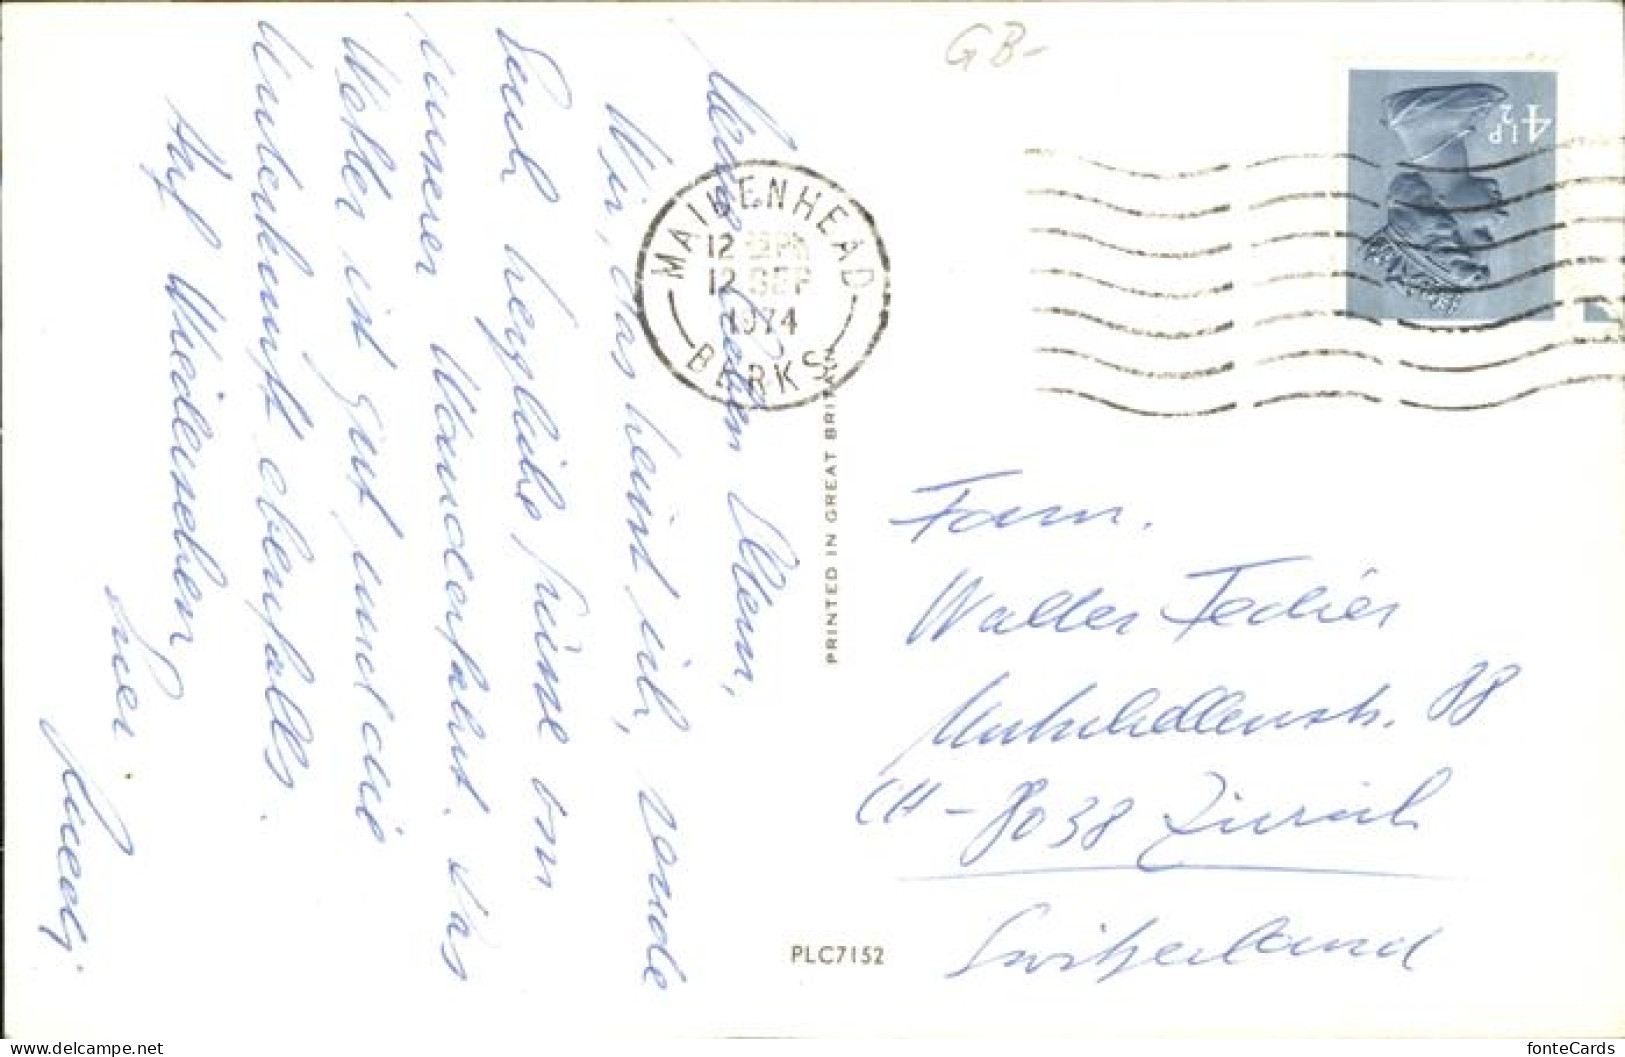 Meine Lieben,
Wir, das heisst ich, sende
Euch herzliche Grüsse von
unserer Wanderfahrt. Das
Wetter ist gut und die
Unterkunft ebenfalls.
Auf Wiedersehen
Euer
GB-
4½P
MAIDENHEAD
12 SEP
1974
BERKS
PRINTED IN GREAT BRITAIN
Fam.
Walter
88
CH-8038 Zürich
Switzerland
PLC7152
delcampe.net
fonteCards